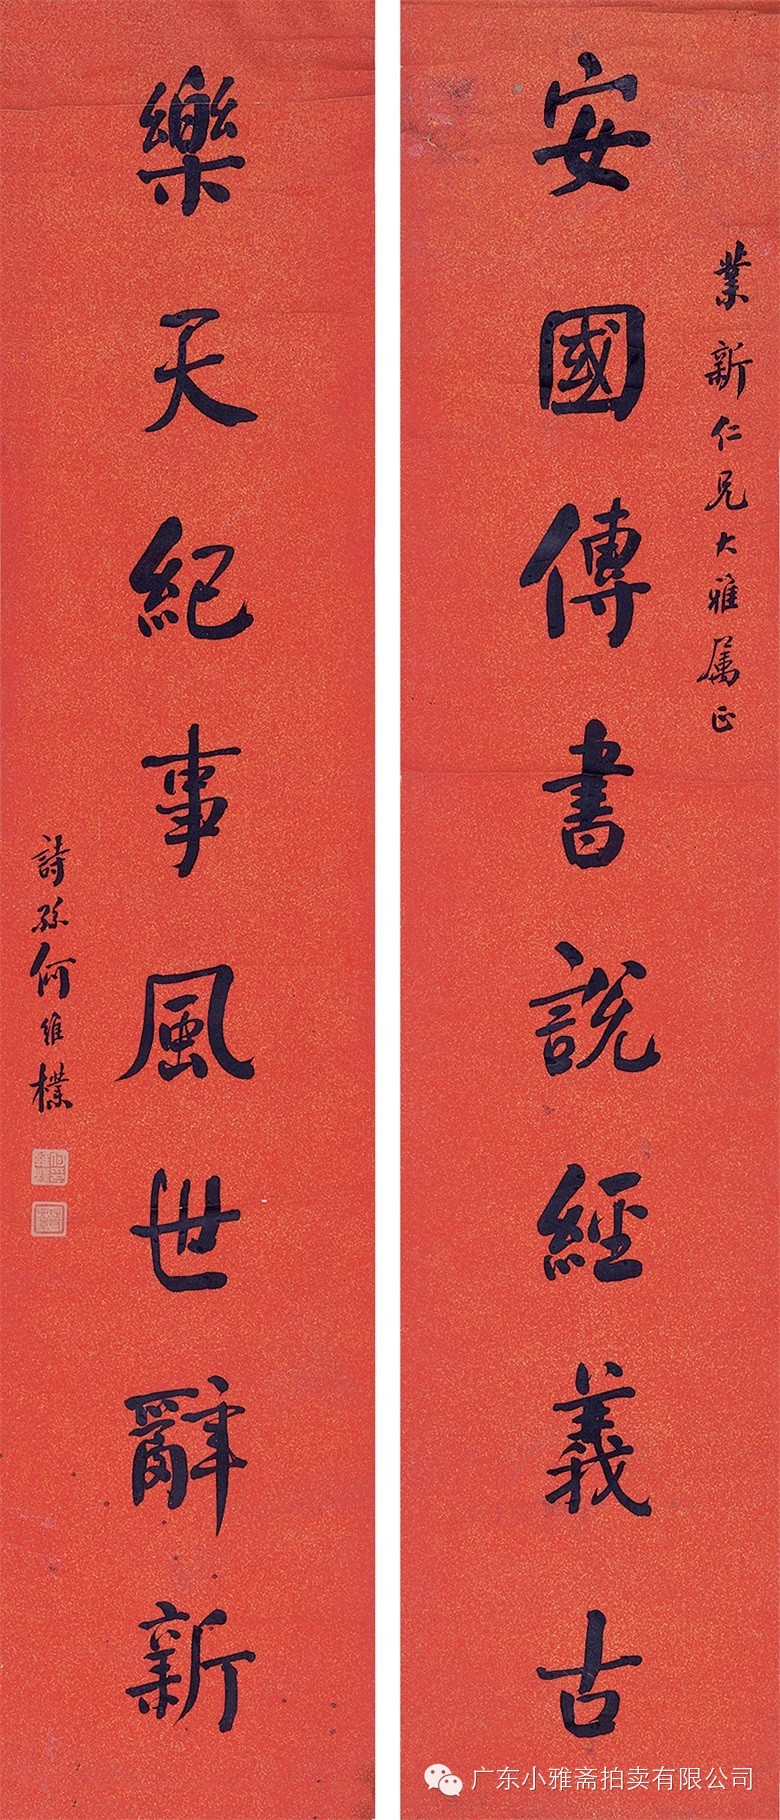 業新仁兄大雅属正
安國傳書說經義古
樂天紀事風世辭新
詩孫何維樸
广东小雅斋拍卖有限公司